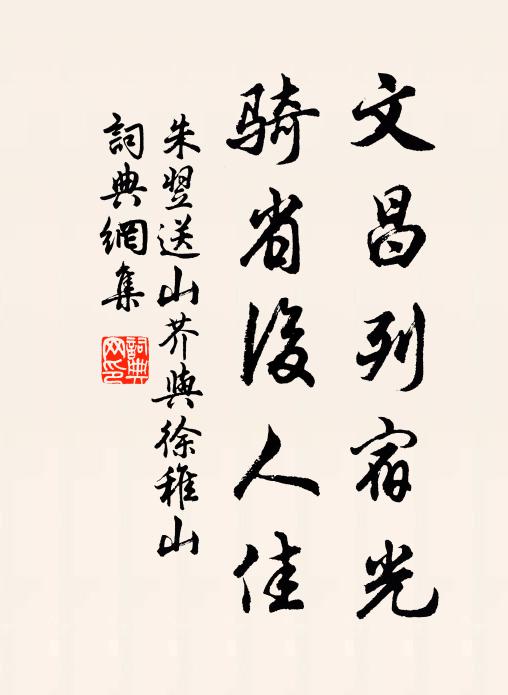 文昌列宿光
騎省後人佳
朱翌送山芥與徐稚山
詞典網集
詞典網印